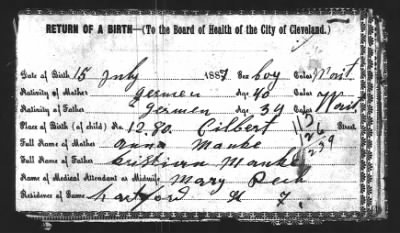 RETURN OF A BIRTH—(To the Board of Health of the City of Cleveland.)
Date of Birth 15 July 1887 Sex boy Color Wait
Nativity of Mother germen Age 40 Color Wait
Nativity of Father germen Age 39
Place of Birth (of child) No. 12.90. Gilbert Street
Full Name of Mother anna Manke
Full Name of Father Cristian Manke
Name of Medical Attendant or Midwife Mary Pech
Residence of Same hartford St 7.